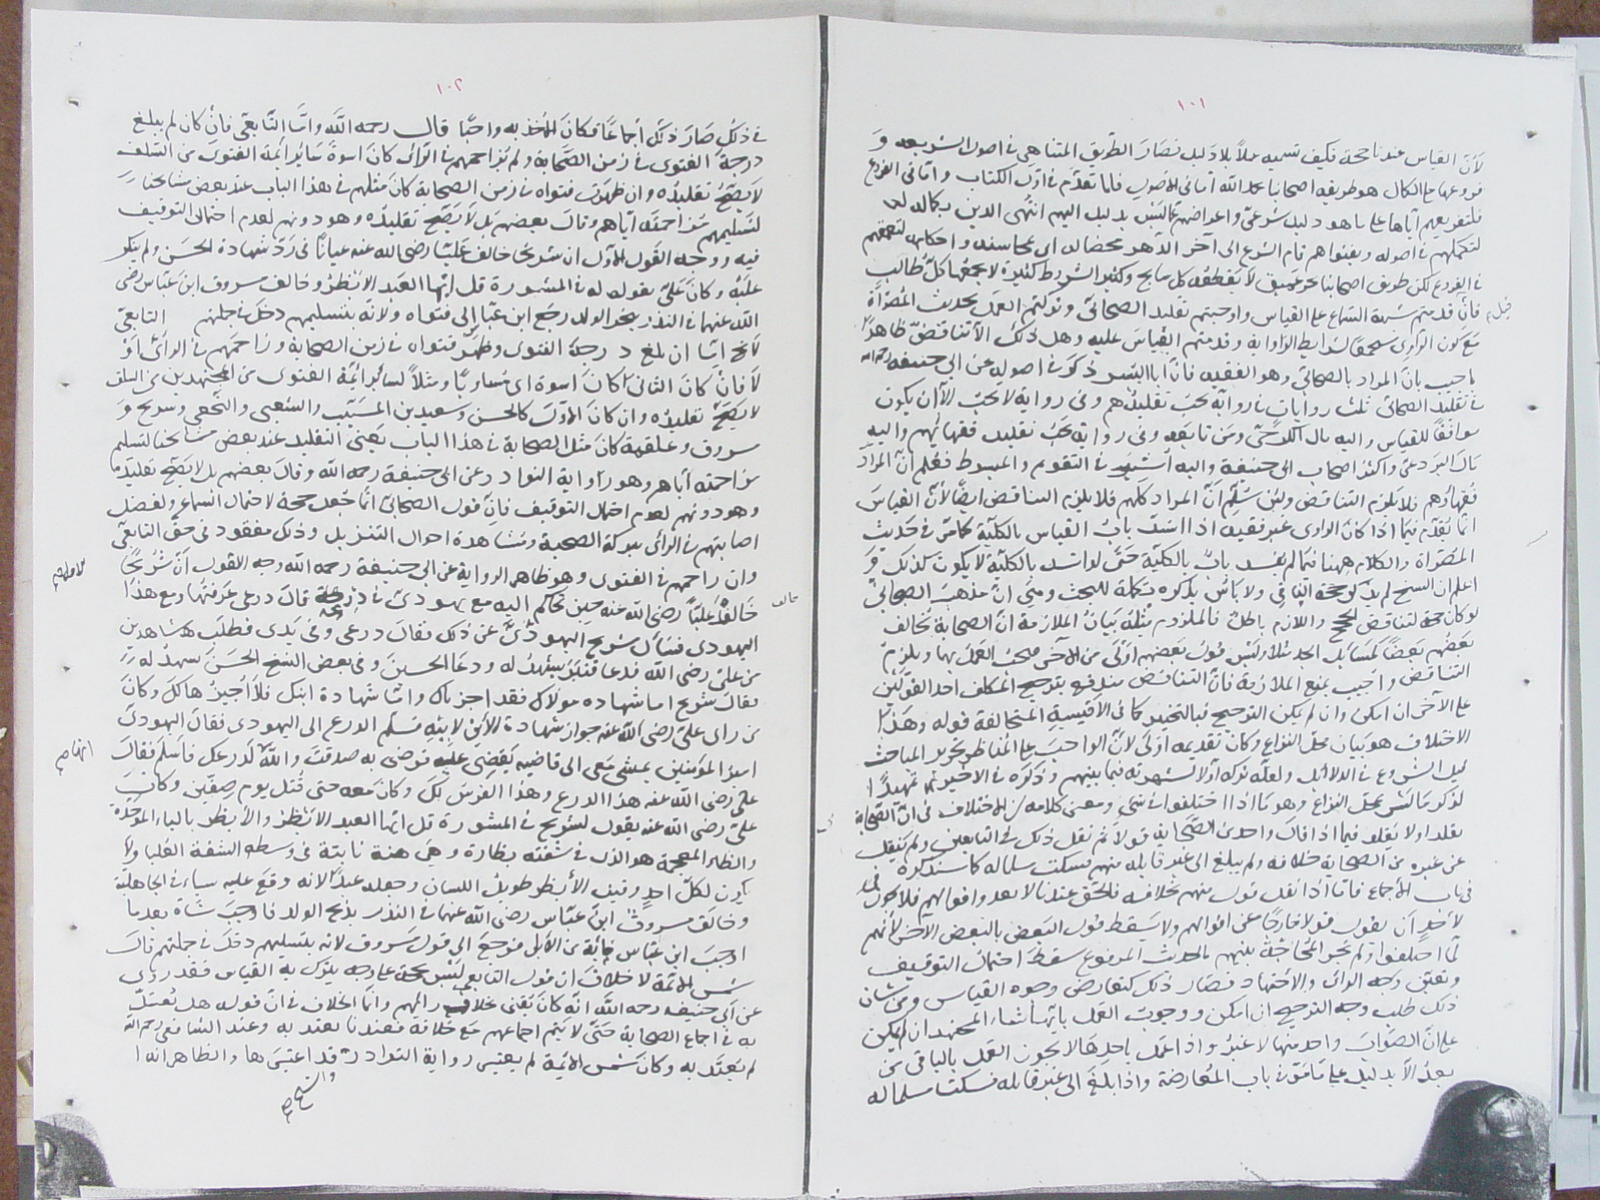 ١٠١
لان القياس عندنا حجة فكيف تسميه عملاً بلا دليل فصار الطريق المتناهي في اصول الشريعة و
فروعها على الكمال هو طريقة اصحابنا بحمد الله اما في الاصول فلما تقدم في اول الكتاب واما في الفروع
فلتفريعهم اياها على ما هو دليل شرعي واعراضهم عما ليس بدليل اليهم انتهى الدين بكماله
لتكملهم في اصوله وبفتواهم قام الشرع الى آخر الدهر بخصاله اي محاسنه واحكامه لتعمقهم
في الفروع لكن طريق اصحابنا بحر عميق لا يقطعه كل سابح وكثير الشروط كثيرة لا يجمعها كل طالب
فان قيل قدمتم شبهة السماع على القياس واوجبتم تقليد الصحابي وتركتم العمل بحديث المصراة
مع كون الراوي مستجمعا لشرايط الرواية وقدمتم القياس عليه وهل ذلك الا تناقض ظاهر
اجيب بان المراد بالصحابي هو الفقيه فان ابا اليسر ذكر في اصوله عن ابي حنيفة رحمه الله
في تقليد الصحابي ثلث روايات في رواية يجب تقليدهم وفي رواية لا يجب الا ان يكون
موافقا للقياس واليه مال الكرخي ومن تابعه وفي رواية يجب تقليد فقهائهم واليه
مال البردعي واكثر اصحاب ابي حنيفة واليه اشير في التقويم والمبسوط فعلم ان المراد
فقهاؤهم فلا يلزم التناقض ولئن سلم ان المراد كلهم فلا يلزم التناقض ايضا لان القياس
انما يقدم فيما اذا كان الراوي غير فقيه اذا انسد باب القياس بالكلية كما في حديث
المصراة والكلام ههنا فيما لم ينسد باب بالكلية حتى لو انسد بالكلية لا يكون كذلك و
اعلم ان الشيخ لم يذكر حجة النافي ولا بأس بذكره تكملة للبحث وهي ان مذهب الصحابي
لو كان حجة لتناقض الحجج واللازم باطل فالملزوم مثله بيان الملازمة ان الصحابة تخالف
بعضهم بعضا كمسائل الجد مثلا وليس قول بعضهم اولى من الآخر فيجب العمل بها ويلزم
التناقض واجيب بمنع الملازمة فان التناقض مندفع بترجيح المكلف احد القولين
على الآخر ان امكن وان لم يكن الترجيح فبالتخيير كما في الاقيسة المتخالفة قوله وهذا
الاختلاف هو بيان محل النزاع وكان تقديمه اولى لان الواجب على المناظر تحرير المباحث
قبل الشروع في الدلائل ولعله تركه اولا لشهرته فيما بينهم وذكره في الاخير تمهيدا
لذكر ما ليس بمحل النزاع وهو ما اذا اختلفوا في شيء ومعنى كلامه ان الاختلاف في ان الصحابة
يقلد او لا يقلد فيما اذا قال واحد من الصحابة قولا ثم نقل ذلك في التابعين ولم ينقل
عن غيره من الصحابة خلافه ولم يبلغ الى غير قايله منهم فسكت سلما له كما سنذكره
في باب الاجماع فاما اذا نقل قول منهم بخلافه فالحق عندنا لا يعدوا اقوالهم فلا يجوز
لاحد ان يقول قولا خارجا عن اقوالهم ولا يسقط قول البعض بالبعض الآخر لانهم
لما اختلفوا ولم تجر المحاجة بينهم بالحديث المرفوع سقط احتمال التوقيف
وتعين وجه الرأي والاجتهاد فصار ذلك كتعارض وجوه القياس ومن شان
ذلك طلب وجه الترجيح ان امكن ووجوب العمل بايها شاء المجتهد ان لم يكن
على ان الصواب واحد منها لا غير واذا عمل باحدها لا يجوز العمل بالباقي من
بعد الا بدليل على ما مر في باب المعارضة واذا بلغ الى غير قايله فسكت سلما له
١٠٢
في ذلك صار ذلك اجماعا فكان الاخذ به واجبا قال رحمه الله واما التابعي فان كان لم يبلغ
درجة الفتوى في زمن الصحابة ولم يزاحمهم في الرأي كان اسوة ساير ائمة الفتوى من السلف
لا يصح تقليده وان ظهرت فتواه في زمن الصحابة كان مثلهم في هذا الباب عند بعض مشايخنا
لتسليمهم مزاحمته اياهم وقال بعضهم بل لا يصح تقليده وهو دونهم لعدم احتمال التوقيف
فيه ووجه القول الاول ان شريحا خالف عليا رضي الله عنه عيانا في رد شهادة الحسن ولم ينكر
عليه وكان علي يقول له في المشورة قل ايها العبد الابظر وخالف مسروق ابن عباس رضي
الله عنهما في النذر بنحر الولد رجع ابن عباس الى فتواه ولانه بتسليمهم دخل في جملتهم التابعي
لا يخ اما ان بلغ درجة الفتوى وظهر فتواه في زمن الصحابة وزاحمهم في الرأي او
لا فان كان الثاني كان اسوة اي مساويا ومثلا لسائر ائمة الفتوى من المجتهدين من السلف
لا يصح تقليده وان كان الاول كالحسن وسعيد بن المسيب والشعبي والنخعي وشريح و
مسروق وعلقمة كان مثل الصحابة في هذا الباب يعني التقليد عند بعض مشايخنا لتسليم
مزاحمته اياهم وهو رواية النوادر عن ابي حنيفة رحمه الله وقال بعضهم بل لا يصح تقليد
وهو دونهم لعدم احتمال التوقيف فان قول الصحابي انما جعل حجة لاحتمال السماع ولفضل
اصابتهم في الرأي ببركة الصحبة ومشاهدة احوال التنزيل وذلك مفقود في حق التابعي
وان زاحمهم في الفتوى وهو ظاهر الرواية عن ابي حنيفة رحمه الله وجه القول ان شريحا
خالف عليا رضي الله عنه حين تحاكم اليه مع يهودي في درعه قال درعي عرفتها ومع هذا
اليهودي فسأل شريح اليهودي عن ذلك فقال درعي وفي يدي فطلب شاهدين
من علي رضي الله فدعا قنبر يشهد له ودعا الحسين وفي بعض النسخ الحسن يشهد له
فقال شريح اما شهادة مولاك فقد اجزناك واما شهادة ابنك فلا اجيزها لك وكان
من راى علي رضي الله عنه جواز شهادة الابن لابيه فسلم الدرع الى اليهودي فقال اليهودي
امير المؤمنين يمشي معي الى قاضيه يقضي عليه فرضي به صدقت والله لدرعك فاسلم فقال
علي رضي الله عنه هذا الدرع وهذا الفرس لك وكان معه حتى قتل يوم صفين وكان
علي رضي الله عنه يقول لشريح في المشورة قل ايها العبد الابظر والابظر بالباء الموحدة
والظاء المعجمة هو الذي في شفته بظارة وهي هنة نابتة في وسط الشفة العليا ولا
يكون لكل احد وقيل الابظر طويل اللسان وجعله عبدا لانه وقع عليه سباء في الجاهلية
وخالف مسروق ابن عباس رضي الله عنهما في النذر بذبح الولد فاوجب شاة بعد ما
اوجب ابن عباس مائة من الابل فرجع الى قول مسروق لانه بتسليمهم دخل في جملتهم قال
شمس الائمة لا خلاف ان قول التابعي ليس بحجة على وجه يترك به القياس فقد روي
عن ابي حنيفة رحمه الله انه كان يفتي بخلاف رائهم وانما الخلاف في ان قوله هل يعتد
به في اجماع الصحابة حتى لا يتم اجماعهم مع خلافه فعندنا يعتد به وعند الشافعي رحمه الله
لم يعتد به وكان شمس الائمة لم يعتبر رواية النوادر قد اعتبرها والظاهر انه ا